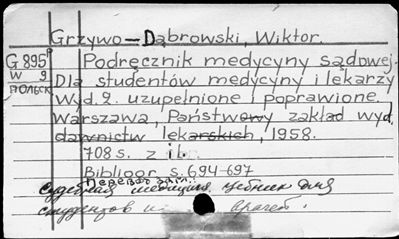 Grzywo-Dąbrowski, Wiktor.
G 895 Podręcznik medycyny sądowej
W 9 Dla studentów medycyny i lekarzy
польск Wyd. 2. uzupełnione i poprawione.
Warszawa, Państwowy zakład wyd
dawnictw lekarskich, 1958.
708 s. z il.
Bibliogr. s. 694-697
Перевод загл.:
Судебная медицина учебник для
студентов и врачей.